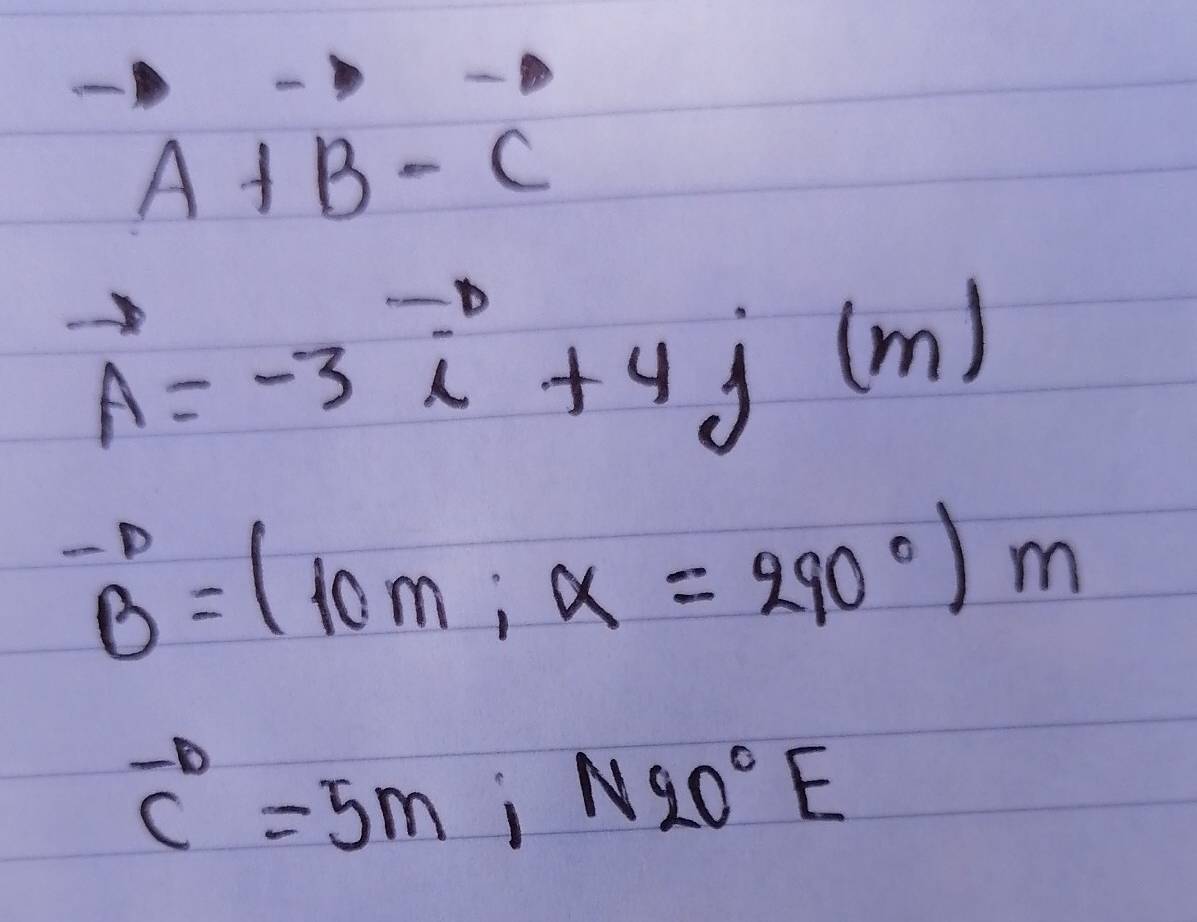 A⃗ + B⃗ - C⃗
A⃗ = -3 i⃗ + 4 j (m)
B⃗ = (10 m ; α = 290°) m
C⃗ = 5m ; N20°E